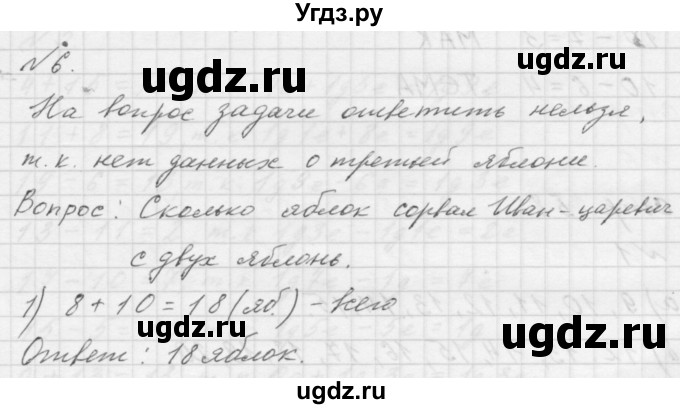 Угдз.ру
№6.
ugdz.ru ugdz.ru
На вопрос задачи ответить нельзя,
ugdz.ru
т.к. нет данных о третьей яблони.
Вопрос: Сколько яблок сорвал Иван-царевич
ugdz.ru ugdz.ru
с двух яблонь.
1) 8 + 10 = 18 (яб.) - всего
ugdz.ru
Ответ: 18 яблок.
ugdz.ru ugdz.ru
ugdz.ru